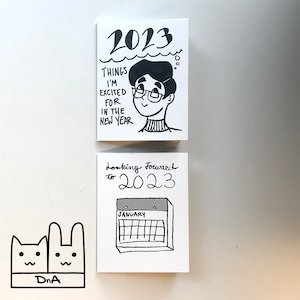 2023
THINGS
I'M
EXCITED
FOR
IN THE
NEW YEAR
Looking Forward
to 2023
JANUARY
DnA